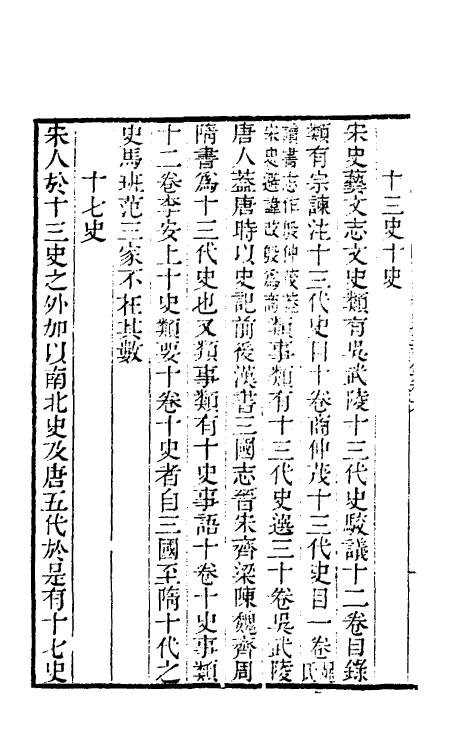 十三史十史
宋史藝文志文史類有吳武陵十三代史駮議十二卷目錄
類有宗諫注十三代史目十卷商仲茂十三代史目一卷晁氏
讀書志作殷仲茂蓋
宋史避諱改殷爲商類事類有十三代史選三十卷吳武陵
唐人蓋唐時以史記前後漢書三國志晉宋齊梁陳魏齊周
隋書爲十三代史也又類事類有十史事語十卷十史事類
十二卷李安上十史類要十卷十史者自三國至隋十代之
史馬班范三家不在其數
十七史
宋人於十三史之外加以南北史及唐五代於是有十七史